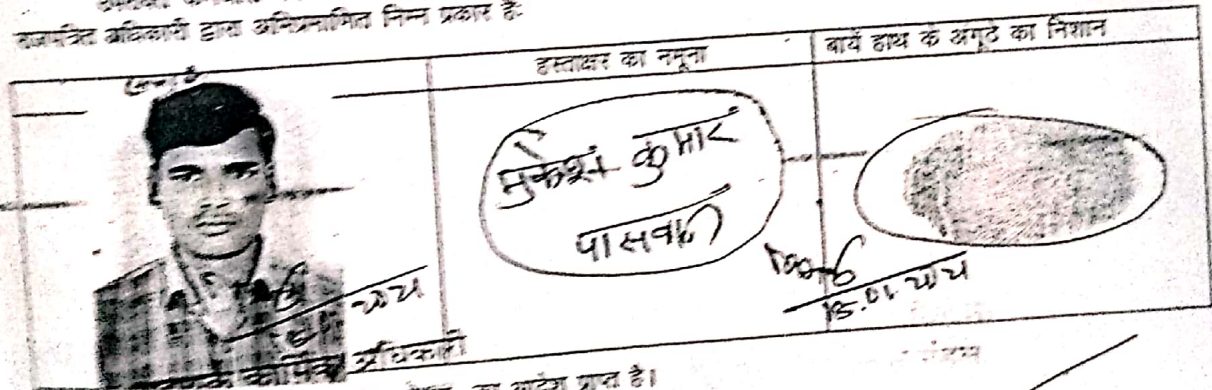 राजपत्रित अधिकारी द्वारा अभिप्रमाणित निम्न प्रकार है:-
हस्ताक्षर का नमूना
बायें हाथ के अंगूठे का निशान
मुकेश कुमार
पासवान
कार्मिक अधिकारी
का आदेश प्राप्त है।